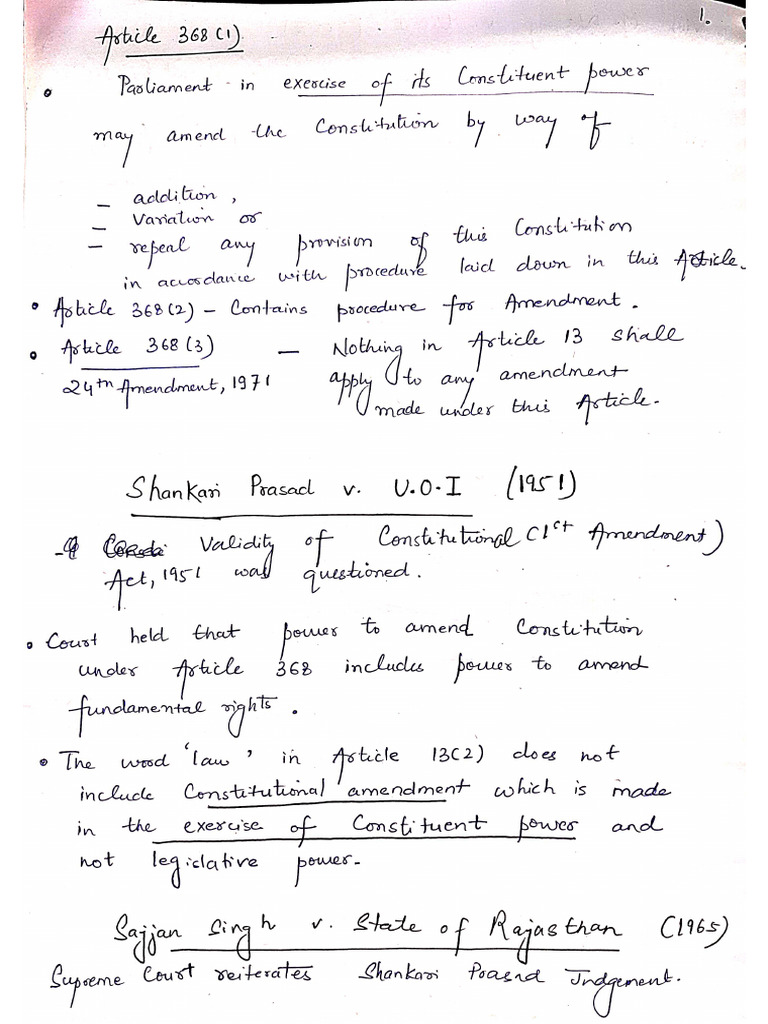 1.
Article 368(1)
• Parliament in exercise of its Constituent power
may amend the Constitution by way of
– addition,
– variation or
– repeal any provision of this Constitution
in accordance with procedure laid down in this Article.
• Article 368(2) – Contains procedure for Amendment.
• Article 368(3) — Nothing in Article 13 shall
24th Amendment, 1971 apply to any amendment
made under this Article.
Shankari Prasad v. U.O.I (1951)
Validity of Constitutional (1st Amendment)
Act, 1951 was questioned.
• Court held that power to amend Constitution
under Article 368 includes power to amend
fundamental rights.
• The word 'law' in Article 13(2) does not
include Constitutional amendment which is made
in the exercise of Constituent power and
not legislative power.
Sajjan Singh v. State of Rajasthan (1965)
Supreme Court reiterates Shankari Prasad Judgement.